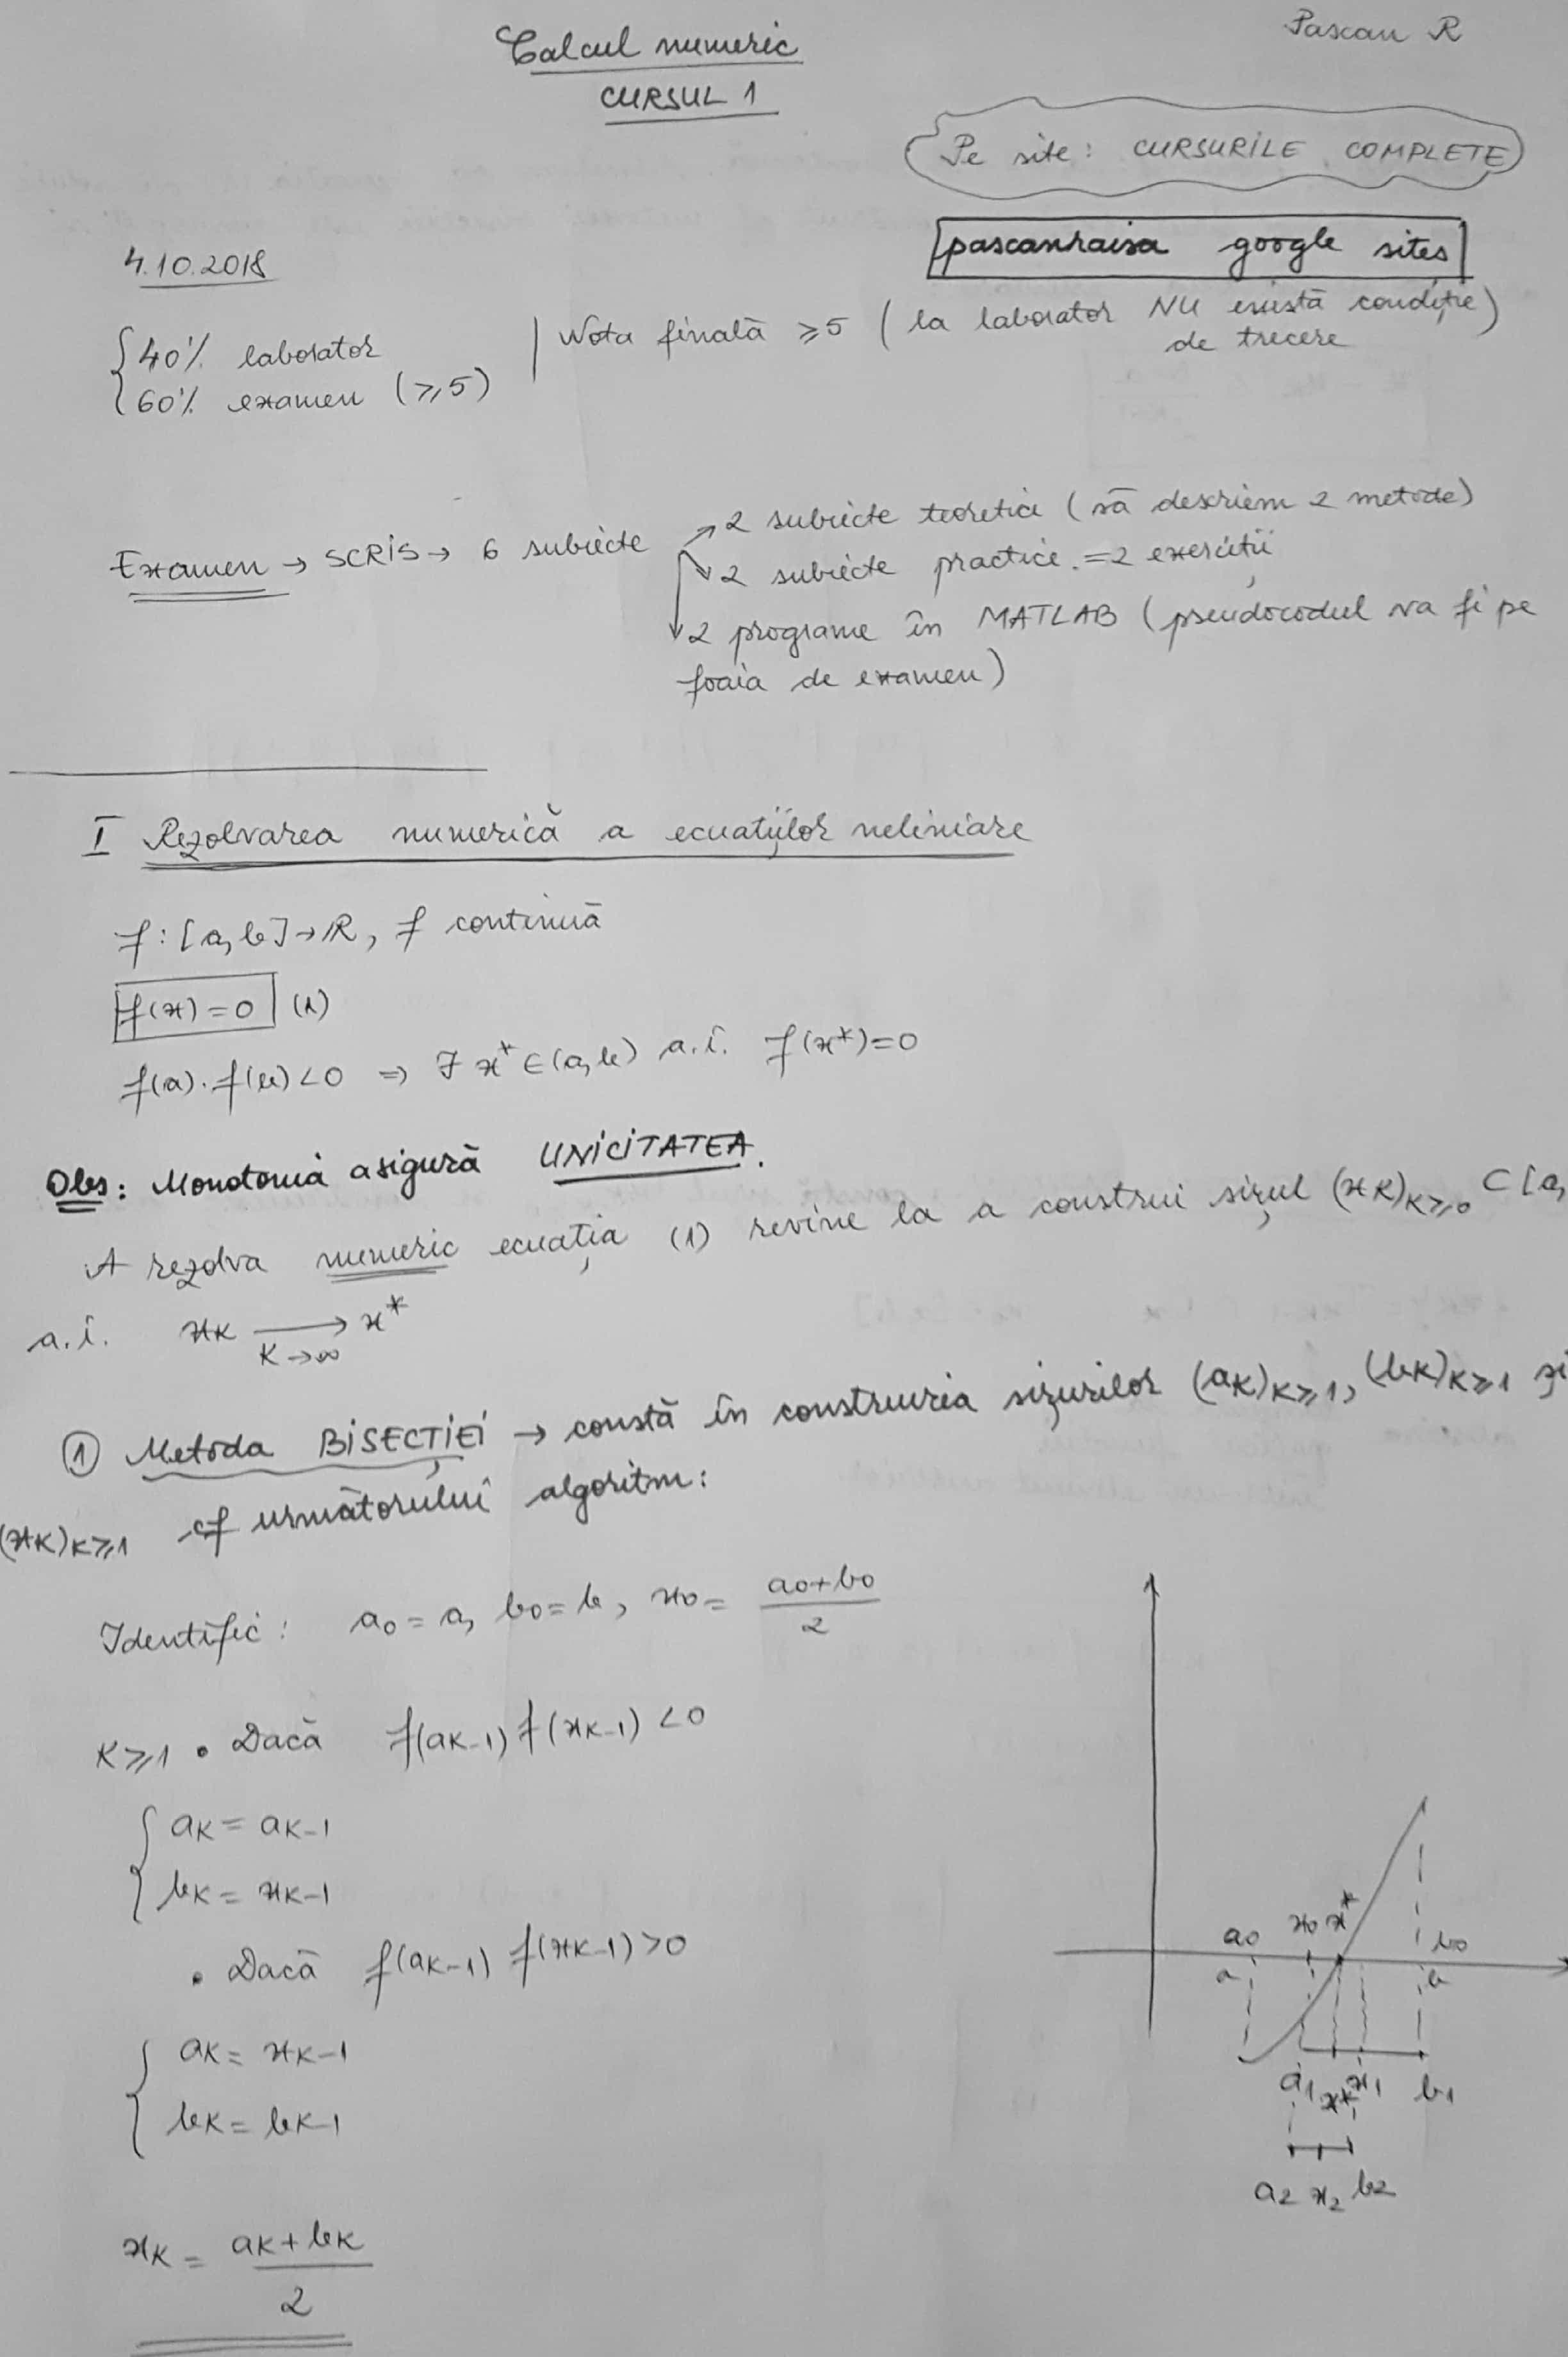 Calcul numeric
Pascan R
CURSUL 1
Pe site: CURSURILE COMPLETE
pascanraisa google sites
4.10.2018
{ 40% laborator
60% examen (≥5)
| Nota finală ≥5 (la laborator NU există condiție)
de trecere
Examen → SCRIS → 6 subiecte
→ 2 subiecte teoretice (să descriem 2 metode)
→ 2 subiecte practice = 2 exerciții
→ 2 programe în MATLAB (pseudocodul va fi pe
foaia de examen)
I Rezolvarea numerică a ecuațiilor neliniare
f: [a, b] → ℝ, f continuă
f(x) = 0 (1)
f(a)·f(b) < 0 ⇒ ∃ x* ∈ (a, b) a.î. f(x*) = 0
Obs: Monotonia asigură UNICITATEA.
A rezolva numeric ecuația (1) revine la a construi șirul (xk)k≥0 ⊂ [a,
a.î. xk → x*
k→∞
① Metoda BISECȚIEI → constă în construirea șirurilor (ak)k≥1, (bk)k≥1 și
(xk)k≥1 cf următorului algoritm:
Identific: a0 = a, b0 = b, x0 = (a0+b0)/2
k≥1 • Dacă f(ak-1) f(xk-1) < 0
{ ak = ak-1
bk = xk-1
• Dacă f(ak-1) f(xk-1) > 0
{ ak = xk-1
bk = bk-1
xk = (ak + bk)/2
a0 x0 x* b0
a b
a1 x* x1 b1
a2 x2 b2